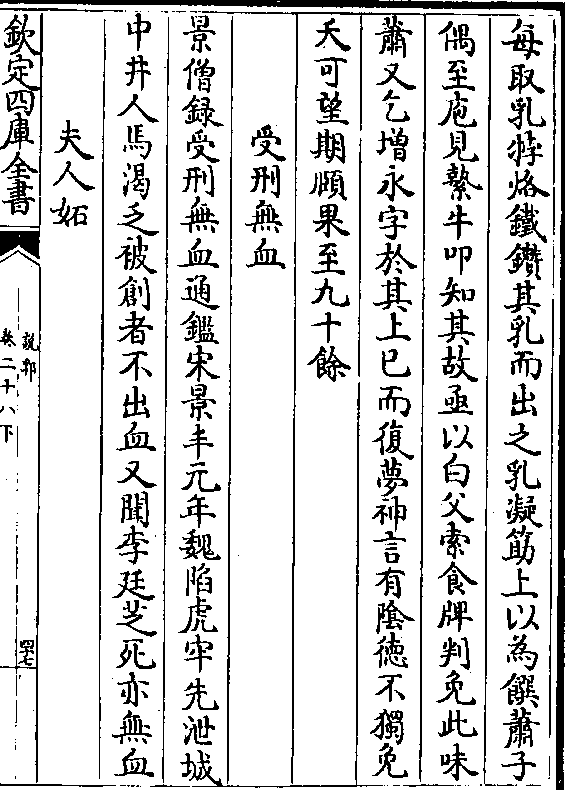 每取乳牸烙鐵鑽其乳而出之乳凝筯上以為饌蕭子
偶至庖見縶牛叩知其故亟以白父索食牌判免此味
蕭又乞增永字於其上已而復夢神言有陰德不獨免
夭可望期頤果至九十餘
受刑無血
景僧録受刑無血通鑑宋景丰元年魏陷虎牢先泄城
中井人馬渴乏被創者不出血又聞李廷芝死亦無血
夫人妬
欽定四庫全書
說郛
卷二十八下
四七